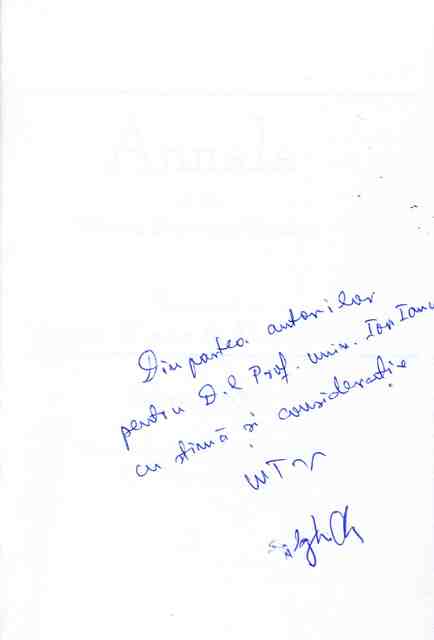 Annals
Din partea autorilor
pentru D.l Prof. univ. Ion Iancu
cu stimă și considerație